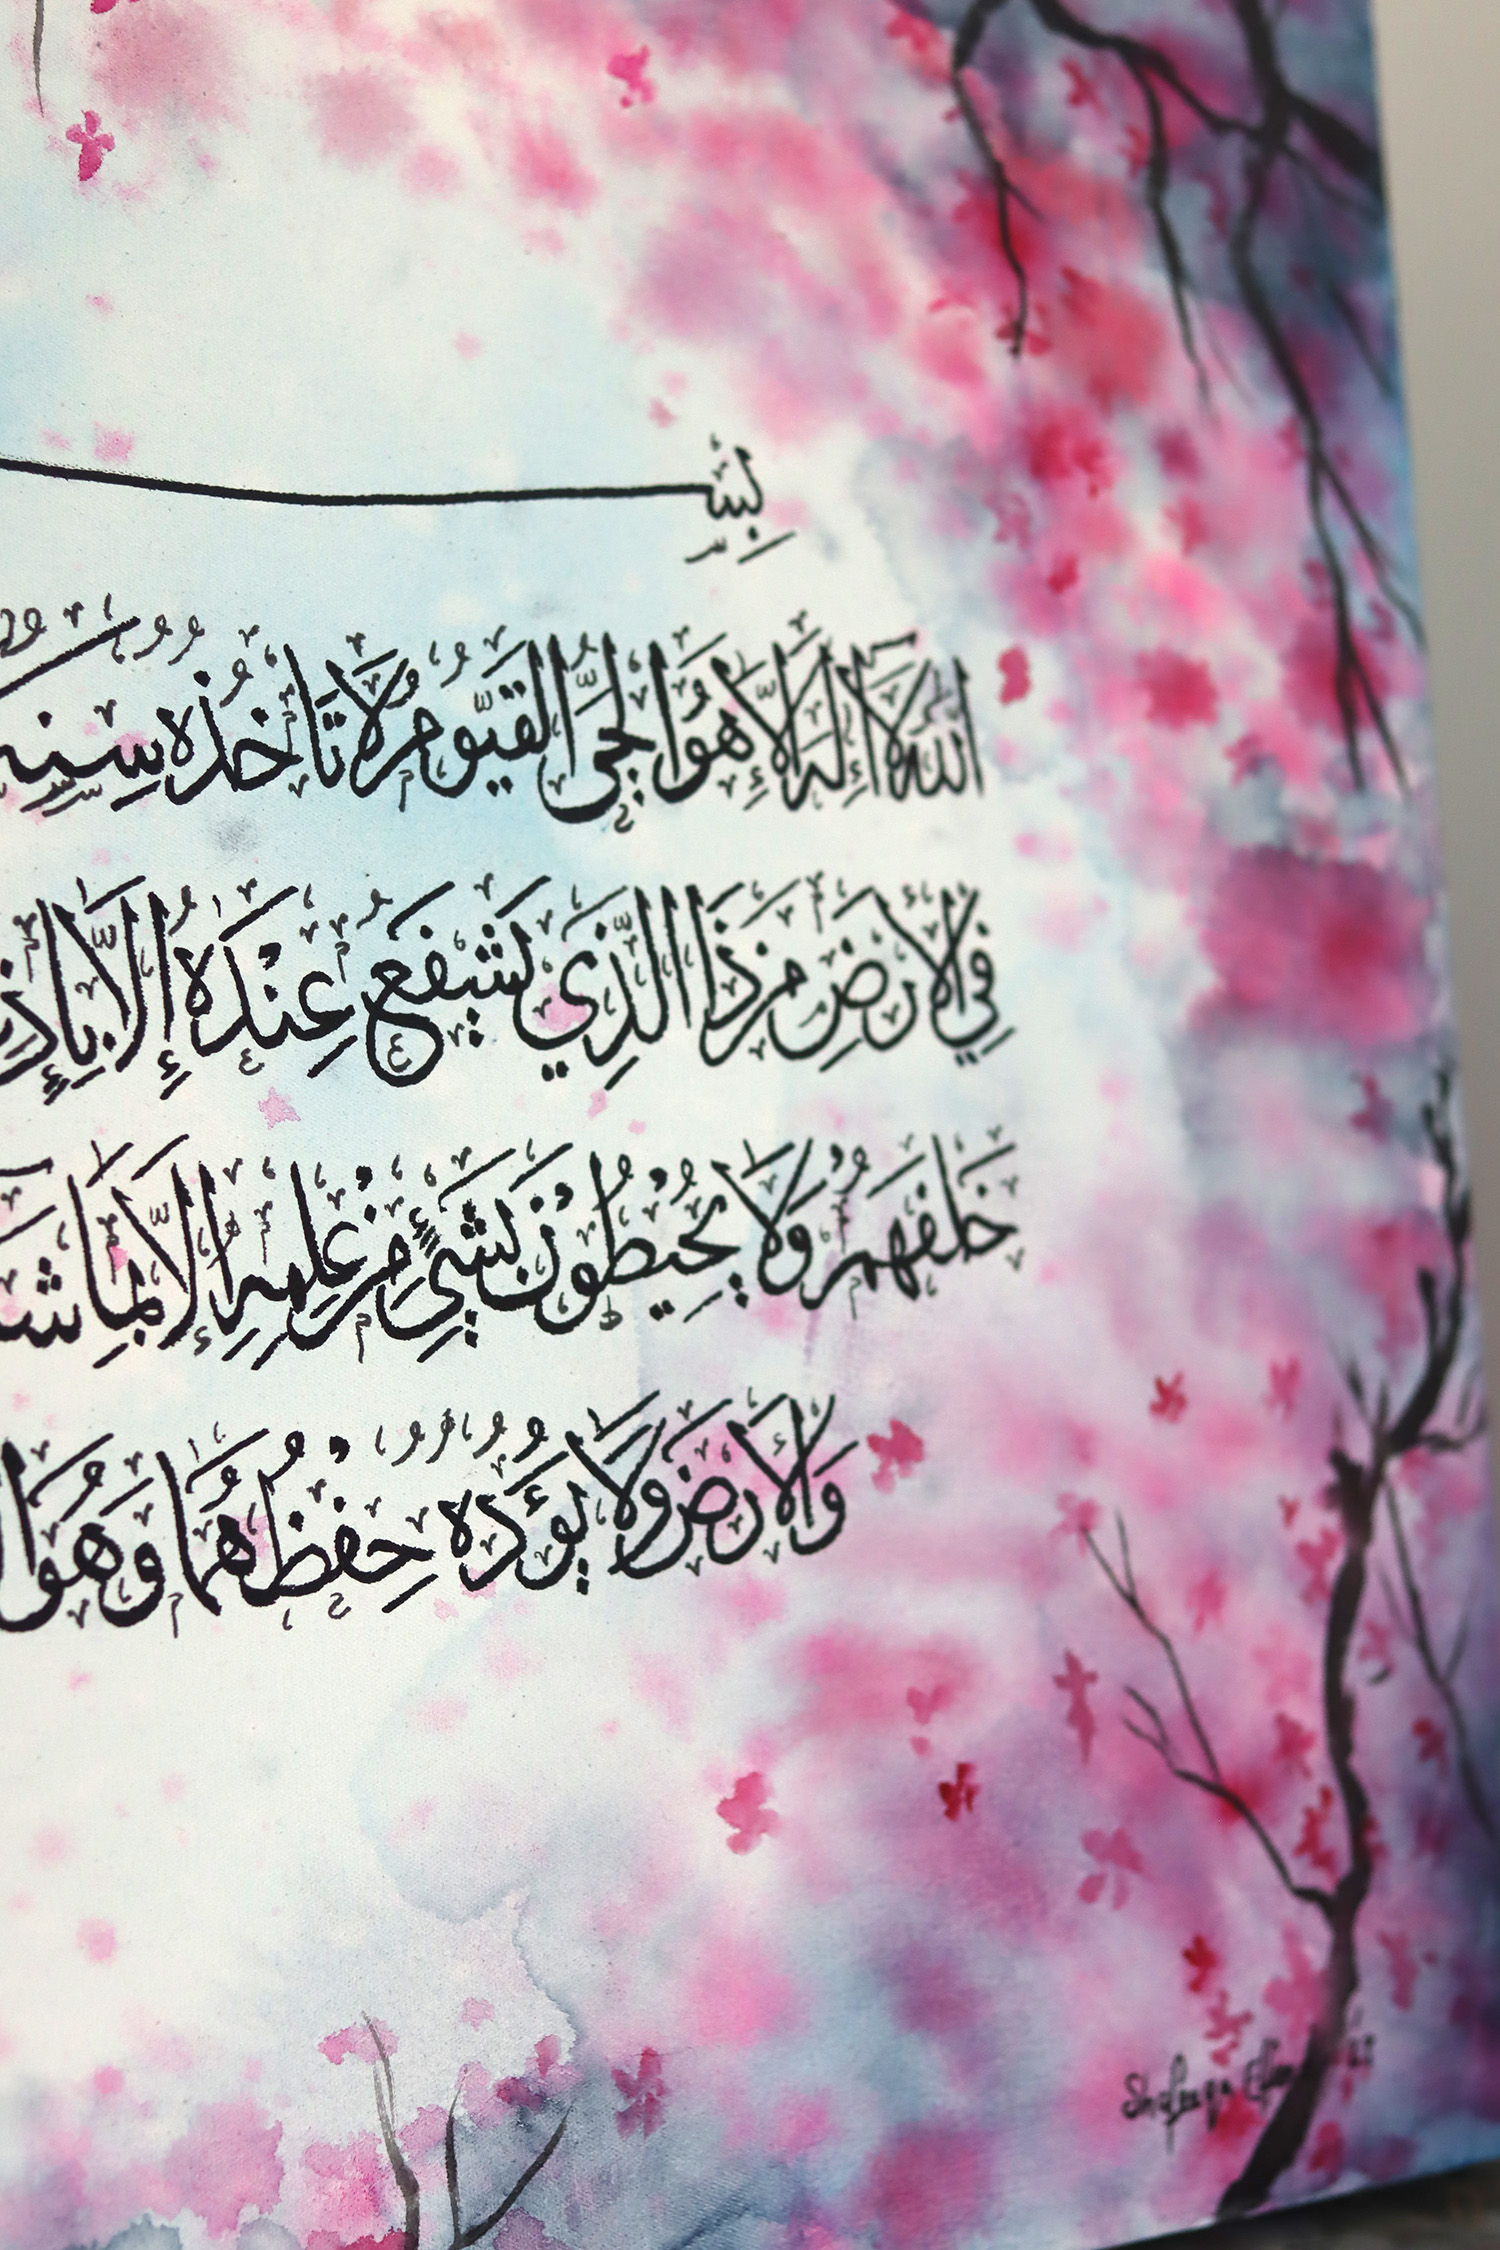 بِسْ
اَللّٰهُ لَا إِلٰهَ إِلَّا هُوَ الْحَيُّ الْقَيُّومُ لَا تَأْخُذُهُ سِنَةٌ
فِي الْأَرْضِ مَنْ ذَا الَّذِي يَشْفَعُ عِنْدَهُ إِلَّا بِإِذْنِ
خَلْفَهُمْ وَلَا يُحِيْطُوْنَ بِشَيْءٍ مِنْ عِلْمِهِ إِلَّا بِمَا شَا
وَالْأَرْضَ وَلَا يَؤُدُهُ حِفْظُهُمَا وَهُوَ ا